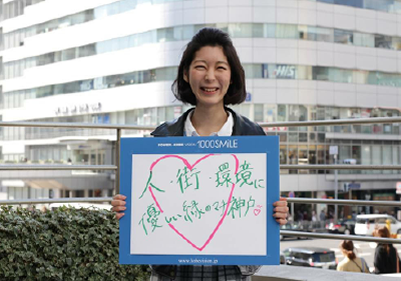 1000SMiLE
人・街・環境に
優しい緑のマチ神戸
www.kobevision.jp
HIS